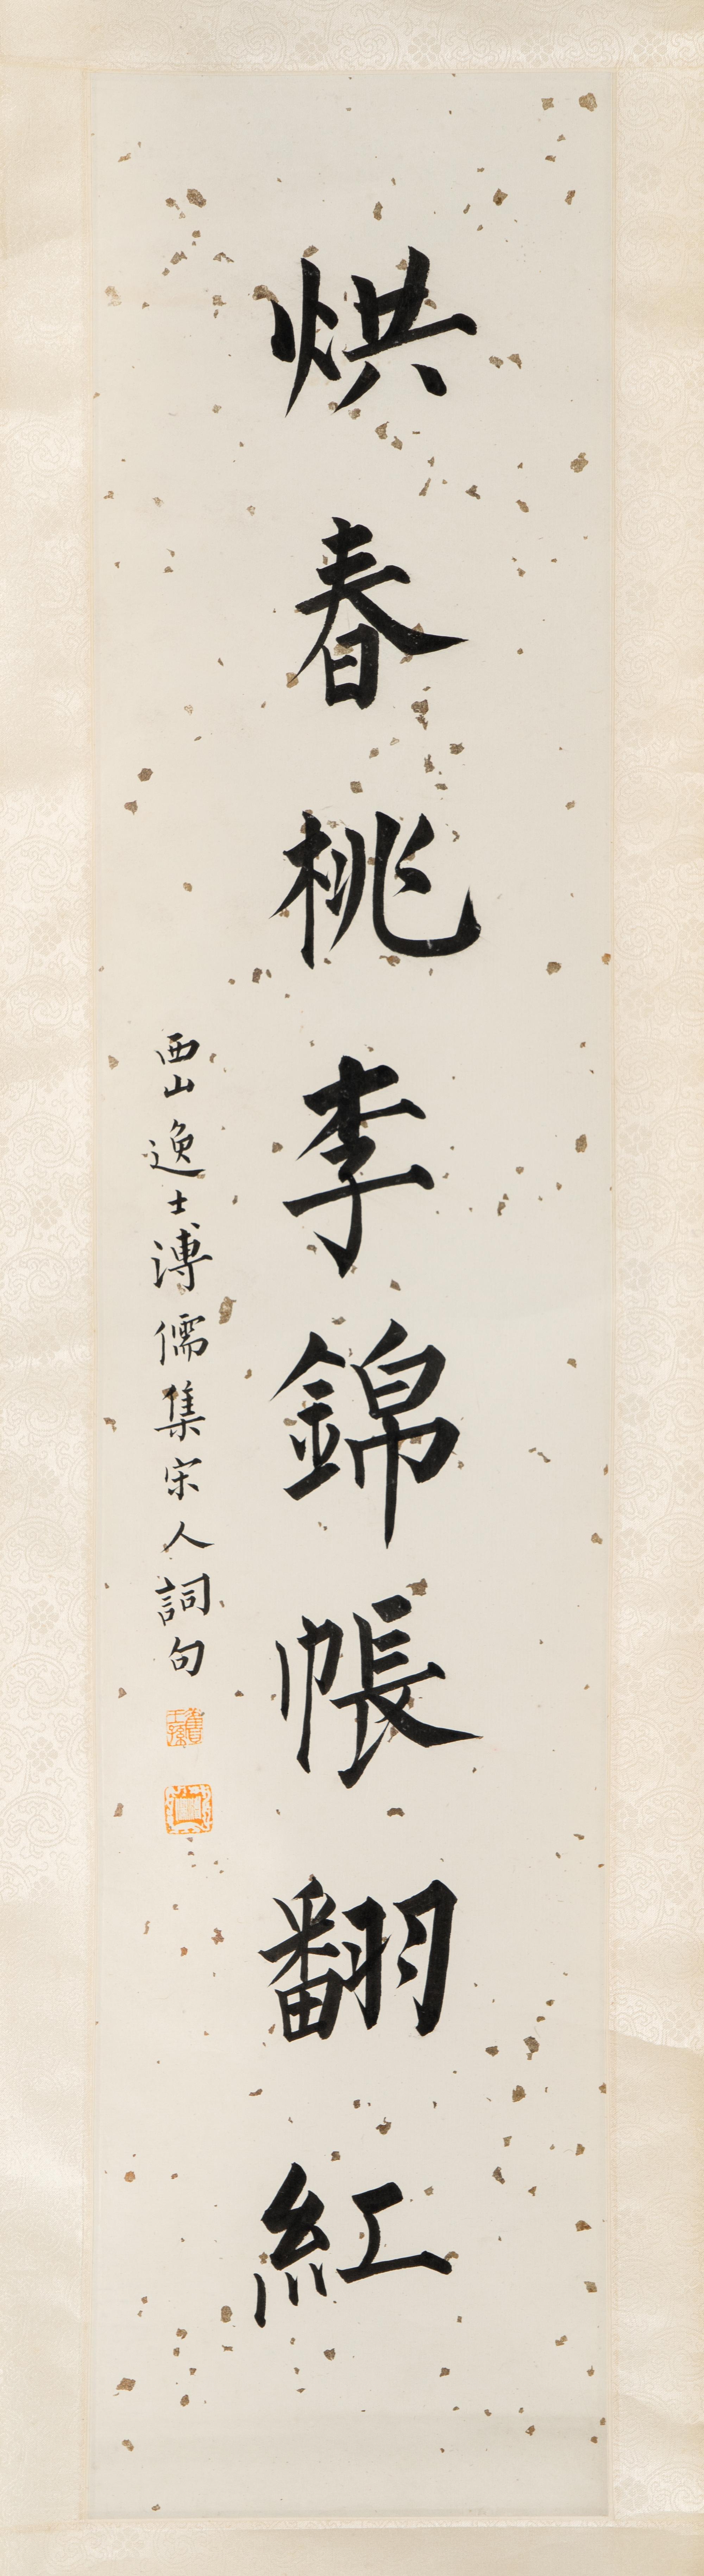 烘春桃李錦帳翻紅
西山逸士溥儒集宋人詞句
舊王孫